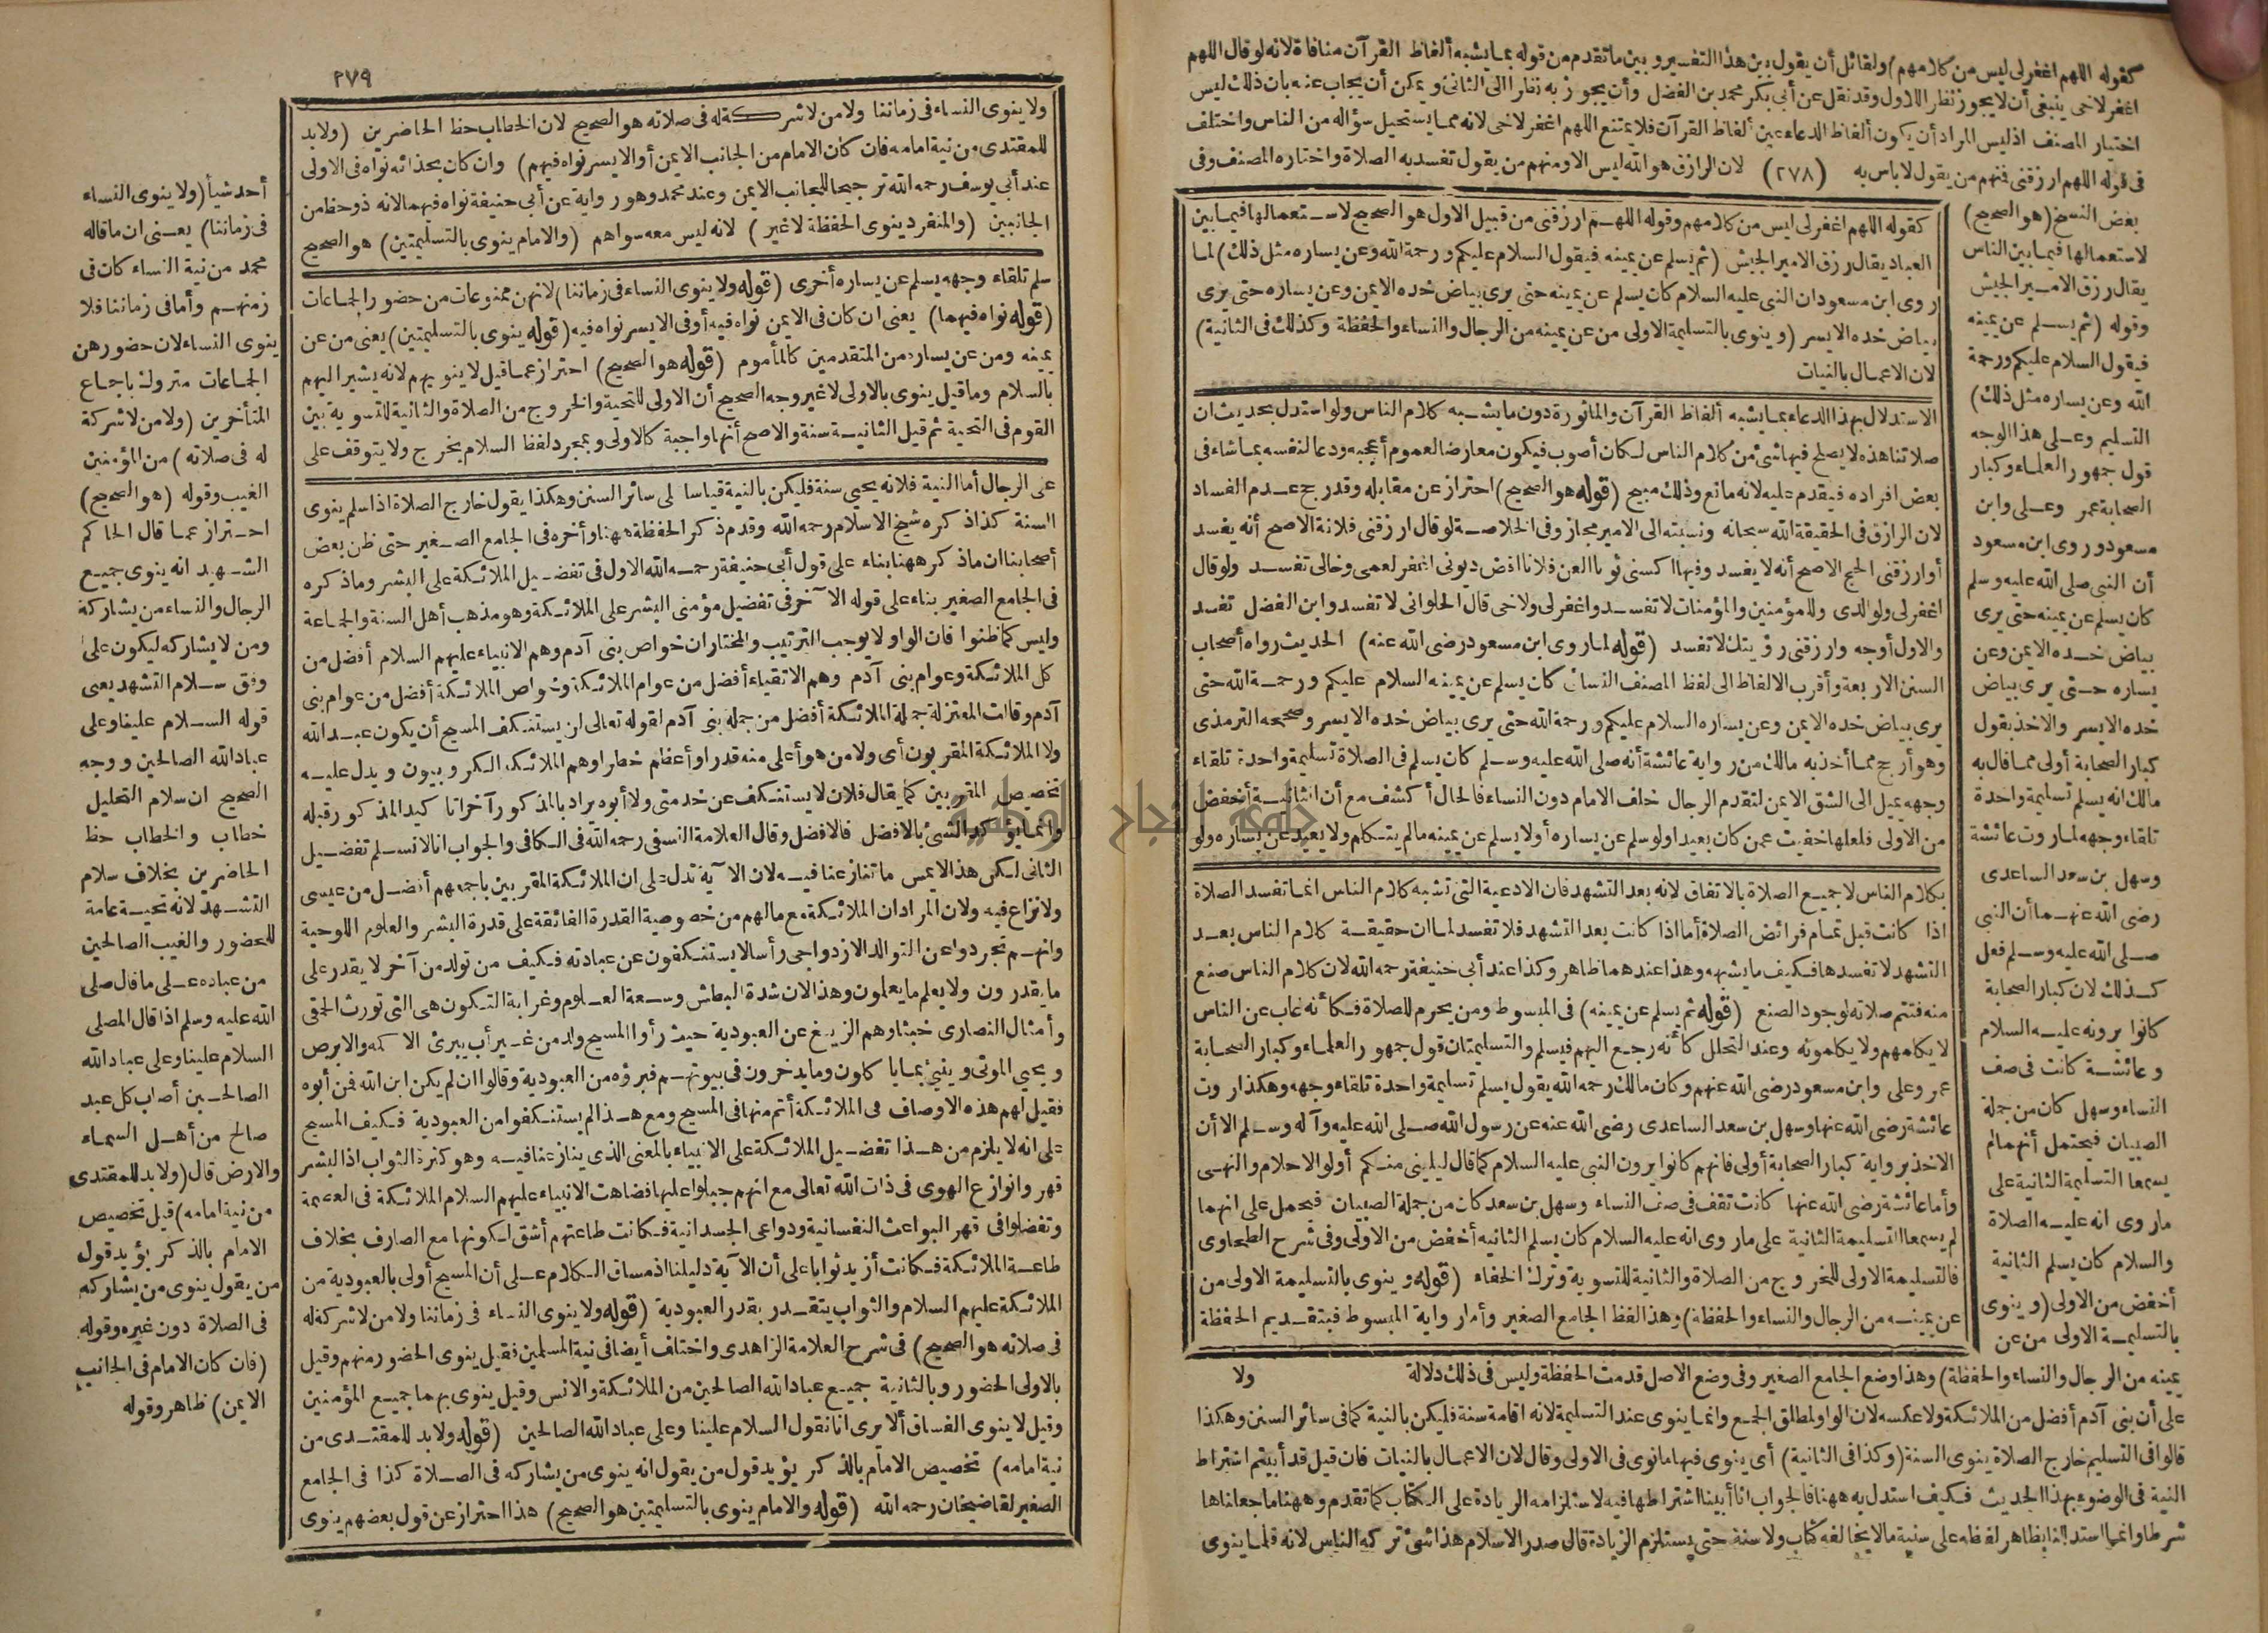 كقوله اللهم اغفرلى ليس من كلامهم) ولقائل أن يقول بين هذا التفسير وبين ما تقدم من قوله بما يشبه ألفاظ القرآن منافاة لانه لو قال اللهم
اغفر لاخى ينبغى أن لا يجوز نظرا للاول وقد نقل عن أبى بكر محمد بن الفضل وأن يجوز به نظرا الى الثانى ويمكن أن يجاب عنه بان ذلك ليس
اختيار المصنف اذ ليس المراد أن يكون ألفاظ الدعاء عين ألفاظ القرآن فلا يمتنع اللهم اغفر لاخى لانه مما يستحيل سؤاله من الناس واختلف
فى قوله اللهم ارزقنى فمنهم من يقول لا باس به (٢٧٨) لان الرازق هو الله ليس الا ومنهم من يقول تفسد به الصلاة واختاره المصنف وفى
بعض النسخ (هو الصحيح)
لاستعمالها فيما بين الناس
يقال رزق الامير الجيش
وقوله (ثم يسلم عن يمينه
فيقول السلام عليكم ورحمة
الله وعن يساره مثل ذلك)
التسليم وعلى هذا الوجه
قول جمهور العلماء وكبار
الصحابة عمر وعلى وابن
مسعود وروى ابن مسعود
أن النبى صلى الله عليه وسلم
كان يسلم عن يمينه حتى يرى
بياض خده الايمن وعن
يساره حتى يرى بياض
خده الايسر والاخذ بقول
كبار الصحابة أولى مما قال به
مالك انه يسلم تسليمة واحدة
تلقاء وجهه لما روت عائشة
وسهل بن سعد الساعدى
رضى الله عنهما أن النبى
صلى الله عليه وسلم فعل
كذلك لان كبار الصحابة
كانوا يرونه عليه السلام
وعائشة كانت فى صف
النساء وسهل كان من جملة
الصبيان فيحتمل أنهما لم
يسمعا التسليمة الثانية على
ما روى انه عليه الصلاة
والسلام كان يسلم الثانية
أخفض من الاولى (وينوى
بالتسليمة الاولى من عن
كقوله اللهم اغفرلى ليس من كلامهم وقوله اللهم ارزقنى من قبيل الاول هو الصحيح لاستعمالها فيما بين
العباد يقال رزق الامير الجيش (ثم يسلم عن يمينه فيقول السلام عليكم ورحمة الله وعن يساره مثل ذلك) لما
روى ابن مسعود ان النبى عليه السلام كان يسلم عن يمينه حتى يرى بياض خده الايمن وعن يساره حتى يرى
بياض خده الايسر (وينوى بالتسليمة الاولى من عن يمينه من الرجال والنساء والحفظة وكذلك فى الثانية)
لان الاعمال بالنيات
الاستدلال بهذا الدعاء بما يشبه ألفاظ القرآن والماثورة دون ما يشبه كلام الناس ولو استدل بحديث ان
صلاتنا هذه لا يصلح فيها شئ من كلام الناس لكان أصوب فيكون معارضا لعموم أعجبه ودعا لنفسه بما شاء فى
بعض افراده فيقدم عليه لانه مانع وذلك مبيح (قوله هو الصحيح) احتراز عن مقابله وقد رجح عدم الفساد
لان الرازق فى الحقيقة الله سبحانه ونسبته الى الامير مجاز وفى الخلاصة لو قال ارزقنى فلانة الاصح أنه يفسد
أو ارزقنى الحج الاصح أنه لا يفسد وفيها اكسنى ثوبا العن فلانا اقض ديونى اغفر لعمى وخالى تفسد ولو قال
اغفرلى ولوالدى وللمؤمنين والمؤمنات لا تفسد واغفرلى ولاخى قال الحلوانى لا تفسد وابن الفضل تفسد
والاول أوجه وارزقنى رؤيتك لا تفسد (قوله لما روى ابن مسعود رضى الله عنه) الحديث رواه أصحاب
السنن الاربعة وأقرب الالفاظ الى لفظ المصنف النسائى كان يسلم عن يمينه السلام عليكم ورحمة الله حتى
يرى بياض خده الايمن وعن يساره السلام عليكم ورحمة الله حتى يرى بياض خده الايسر وصححه الترمذى
وهو أرجح مما أخذ به مالك من رواية عائشة أنه صلى الله عليه وسلم كان يسلم فى الصلاة تسليمة واحدة تلقاء
وجهه يميل الى الشق الايمن لتقدم الرجال خلف الامام دون النساء فالحال أكشف مع أن الثانية أخفض
من الاولى فلعلها خفيت عمن كان بعيدا ولو سلم عن يساره أولا يسلم عن يمينه ما لم يتكلم ولا يعيد عن يساره ولو
بكلام الناس لا جميع الصلاة بالاتفاق لانه بعد التشهد فان الادعية التى تشبه كلام الناس انما تفسد الصلاة
اذا كانت قبل تمام فرائض الصلاة أما اذا كانت بعد التشهد فلا تفسد لما ان حقيقة كلام الناس بعد
التشهد لا تفسدها فكيف ما يشبهه وهذا عندهما ظاهر وكذا عند أبى حنيفة رحمه الله لان كلام الناس صنع
منه فتتم صلاته لوجود الصنع (قوله ثم يسلم عن يمينه) فى المبسوط ومن يحرم للصلاة فكأنه غاب عن الناس
لا يكلمهم ولا يكلمونه وعند التحلل كأنه رجع اليهم فيسلم والتسليمتان قول جمهور العلماء وكبار الصحابة
عمر وعلى وابن مسعود رضى الله عنهم وكان مالك رحمه الله يقول يسلم تسليمة واحدة تلقاء وجهه وهكذا روت
عائشة رضى الله عنها وسهل بن سعد الساعدى رضى الله عنه عن رسول الله صلى الله عليه وآله وسلم الا أن
الاخذ برواية كبار الصحابة أولى فانهم كانوا يرون النبى عليه السلام كما قال ليلينى منكم أولو الاحلام والنهى
وأما عائشة رضى الله عنها كانت تقف فى صف النساء وسهل بن سعد كان من جملة الصبيان فيحمل على انهما
لم يسمعا التسليمة الثانية على ما روى انه عليه السلام كان يسلم الثانيه أخفض من الاولى وفى شرح الطحاوى
فالتسليمة الاولى للخروج من الصلاة والثانية للتسوية وترك الجفاء (قوله وينوى بالتسليمة الاولى من
عن يمينه من الرجال والنساء والحفظة) وهذا لفظ الجامع الصغير وأما رواية المبسوط فبتقديم الحفظة
يمينه من الرجال والنساء والحفظة) وهذا وضع الجامع الصغير وفى وضع الاصل قدمت الحفظة وليس فى ذلك دلالة ولا
على أن بنى آدم أفضل من الملائكة ولا عكسه لان الواو لمطلق الجمع وانما ينوى عند التسليمة لانه اقامة سنة فليكن بالنية كما فى سائر السنن وهكذا
قالوا فى التسليم خارج الصلاة ينوى السنة (وكذا فى الثانية) أى ينوى فيها ما نوى فى الاولى وقال لان الاعمال بالنيات فان قيل قد أبيتم اشتراط
النية فى الوضوء بهذا الحديث فكيف استدل به ههنا فالجواب انا أبينا اشتراطها فيه لاستلزامه الزيادة على الكتاب كما تقدم وههنا ما جعلناها
شرطا وانما استدللنا بظاهر لفظه على سنية ما لا يخالفه كتاب ولا سنة حتى يستلزم الزيادة قال صدر الاسلام هذا شئ تركه الناس لانه قلما ينوى
٢٧٩
ولا ينوى النساء فى زماننا ولا من لا شركة له فى صلاته هو الصحيح لان الخطاب حظ الحاضرين (ولا بد
للمقتدى من نية امامه فان كان الامام من الجانب الايمن أو الايسر نواه فيهم) وان كان بحذائه نواه فى الاولى
عند أبى يوسف رحمه الله ترجيحا للجانب الايمن وعند محمد وهو رواية عن أبى حنيفة نواه فيهما لانه ذو حظ من
الجانبين (والمنفرد ينوى الحفظة لا غير) لانه ليس معه سواهم (والامام ينوى بالتسليمتين) هو الصحيح
سلم تلقاء وجهه يسلم عن يساره أخرى (قوله ولا ينوى النساء فى زماننا) لانهن ممنوعات من حضور الجماعات
(قوله نواه فيهما) يعنى ان كان فى الايمن نواه فيه أو فى الايسر نواه فيه (قوله ينوى بالتسليمتين) يعنى من عن
يمينه ومن عن يساره من المتقدمين كالمأموم (قوله هو الصحيح) احتراز عما قيل لا ينويهم لانه يشير اليهم
بالسلام وما قيل ينوى بالاولى لا غير وجه الصحيح أن الاولى للتحية والخروج من الصلاة والثانية للتسوية بين
القوم فى التحية ثم قيل الثانية سنة والاصح أنها واجبة كالاولى وبمجرد لفظ السلام يخرج ولا يتوقف على
على الرجال أما النية فلانه يحيى سنة فليكن بالنية قياسا على سائر السنن وهكذا يقول خارج الصلاة اذا سلم ينوى
السنة كذا ذكره شيخ الاسلام رحمه الله وقدم ذكر الحفظة ههنا وأخره فى الجامع الصغير حتى ظن بعض
أصحابنا ان ما ذكر ههنا بناء على قول أبى حنيفة رحمه الله الاول فى تفضيل الملائكة على البشر وما ذكره
فى الجامع الصغير بناء على قوله الآخر فى تفضيل مؤمنى البشر على الملائكة وهو مذهب أهل السنة والجماعة
وليس كما ظنوا فان الواو لا يوجب الترتيب والمختار ان خواص بنى آدم وهم الانبياء عليهم السلام أفضل من
كل الملائكة وعوام بنى آدم وهم الاتقياء أفضل من عوام الملائكة وخواص الملائكة أفضل من عوام بنى
آدم وقالت المعتزلة جملة الملائكة أفضل من جملة بنى آدم لقوله تعالى لن يستنكف المسيح أن يكون عبد الله
ولا الملائكة المقربون أى ولا من هو أعلى منه قدرا وأعظم خطرا وهم الملائكة الكروبيون ويدل عليه
تخصيص المقربين كما يقال فلان لا يستنكف عن خدمتى ولا أبوه يراد بالمذكور آخرا تاكيد المذكور قبله
وانما يؤكد الشئ بالافضل فالافضل وقال العلامة النسفى رحمه الله فى الكافى والجواب انا لا نسلم تفضيل
الثانى لكن هذا لا يمس ما تنازعنا فيه لان الآية تدل على ان الملائكة المقربين باجمعهم أفضل من عيسى
ولا نزاع فيه ولان المراد ان الملائكة مع مالهم من خصوصية القدرة الفائقة على قدرة البشر والعلوم اللوحية
وانهم تجردوا عن التوالد الازدواجى رأسا لا يستنكفون عن عبادته فكيف من تولد من آخر لا يقدر على
ما يقدرون ولا يعلم ما يعلمون وهذا لان شدة البطش وسعة العلوم وغرابة التكون هى التى تورث الحمقى
وأمثال النصارى خبثا وهم الزيغ عن العبودية حيث رأوا المسيح ولد من غير أب يبرئ الاكمه والابرص
ويحيى الموتى وينبئ بما ياكلون وما يدخرون فى بيوتهم فبرؤه من العبودية وقالوا ان لم يكن ابن الله فمن أبوه
فقيل لهم هذه الاوصاف فى الملائكة أتم منها فى المسيح ومع هذا لم يستنكفوا من العبودية فكيف المسيح
على انه لا يلزم من هذا تفضيل الملائكة على الانبياء بالمعنى الذى ينازعنا فيه وهو كثرة الثواب اذ البشر
قهروا نوازع الهوى فى ذات الله تعالى مع انهم جبلوا عليها فضاهت الانبياء عليهم السلام الملائكة فى العصمة
وتفضلوا فى قهر البواعث النفسانية ودواعى الجسدانية فكانت طاعتهم أشق لكونها مع الصارف بخلاف
طاعة الملائكة فكانت أزيد ثوابا على أن الآية دليلنا اذ مساق الكلام على أن المسيح أولى بالعبودية من
الملائكة عليهم السلام والثواب يتقدر بقدر العبودية (قوله ولا ينوى النساء فى زماننا ولا من لا شركة له
فى صلاته هو الصحيح) فى شرح العلامة الزاهدى واختلف أيضا فى نية المسلمين فقيل ينوى الحضور منهم وقيل
بالاولى الحضور وبالثانية جميع عباد الله الصالحين من الملائكة والانس وقيل ينوى بهما جميع المؤمنين
وقيل لا ينوى الفساق ألا يرى انا نقول السلام علينا وعلى عباد الله الصالحين (قوله ولا بد للمقتدى من
نية امامه) تخصيص الامام بالذكر يؤيد قول من يقول انه ينوى من يشاركه فى الصلاة كذا فى الجامع
الصغير لقاضيخان رحمه الله (قوله والامام ينوى بالتسليمتين هو الصحيح) هذا احتراز عن قول بعضهم ينوى
أحد شيأ (ولا ينوى النساء
فى زماننا) يعنى ان ما قاله
محمد من نية النساء كان فى
زمنهم وأما فى زماننا فلا
ينوى النساء لان حضورهن
الجماعات متروك باجماع
المتأخرين (ولا من لا شركة
له فى صلاته) من المؤمنين
الغيب وقوله (هو الصحيح)
احتراز عما قال الحاكم
الشهيد انه ينوى جميع
الرجال والنساء من يشاركه
ومن لا يشاركه ليكون على
وفق سلام التشهد يعنى
قوله السلام علينا وعلى
عباد الله الصالحين ووجه
الصحيح ان سلام التحليل
خطاب والخطاب حظ
الحاضرين بخلاف سلام
التشهد لانه تحية عامة
للحضور والغيب الصالحين
من عباده على ما قال صلى
الله عليه وسلم اذا قال المصلى
السلام علينا وعلى عباد الله
الصالحين أصاب كل عبد
صالح من أهل السماء
والارض قال (ولا بد للمقتدى
من نية امامه) قيل تخصيص
الامام بالذكر يؤيد قول
من يقول ينوى من يشاركه
فى الصلاة دون غيره وقوله
(فان كان الامام فى الجانب
الايمن) ظاهر وقوله
جامعة النجاح الوطنية